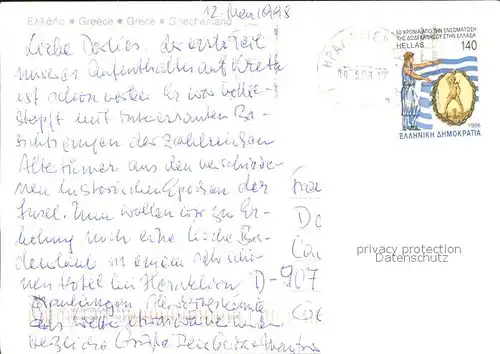 12. März 1998
Ελλάδα • Greece • Grèce • Griechenland
Liebe Dorlies, der erste Teil
unseres Aufenthaltes auf Kreta
ist schon vorbei. Er war vollge-
stopft mit interessanten Be-
sichtigungen der zahlreichen
Altertümer aus den verschiede-
nen historischen Epochen der
Insel. Nun wollen wir zu Er-
holung noch eine Woche Ba-
deurlaub in einem sehr schö-
nen Hotel bei Heraklion
herzliche Grüße
50 ΧΡΟΝΙΑ ΑΠΟ ΤΗΝ ΕΝΣΩΜΑΤΩΣΗ
ΤΗΣ ΔΩΔΕΚΑΝΗΣΟΥ ΣΤΗΝ ΕΛΛΑΔΑ
HELLAS 140
1998
ΕΛΛΗΝΙΚΗ ΔΗΜΟΚΡΑΤΙΑ
Fra
D-907
privacy protection
Datenschutz